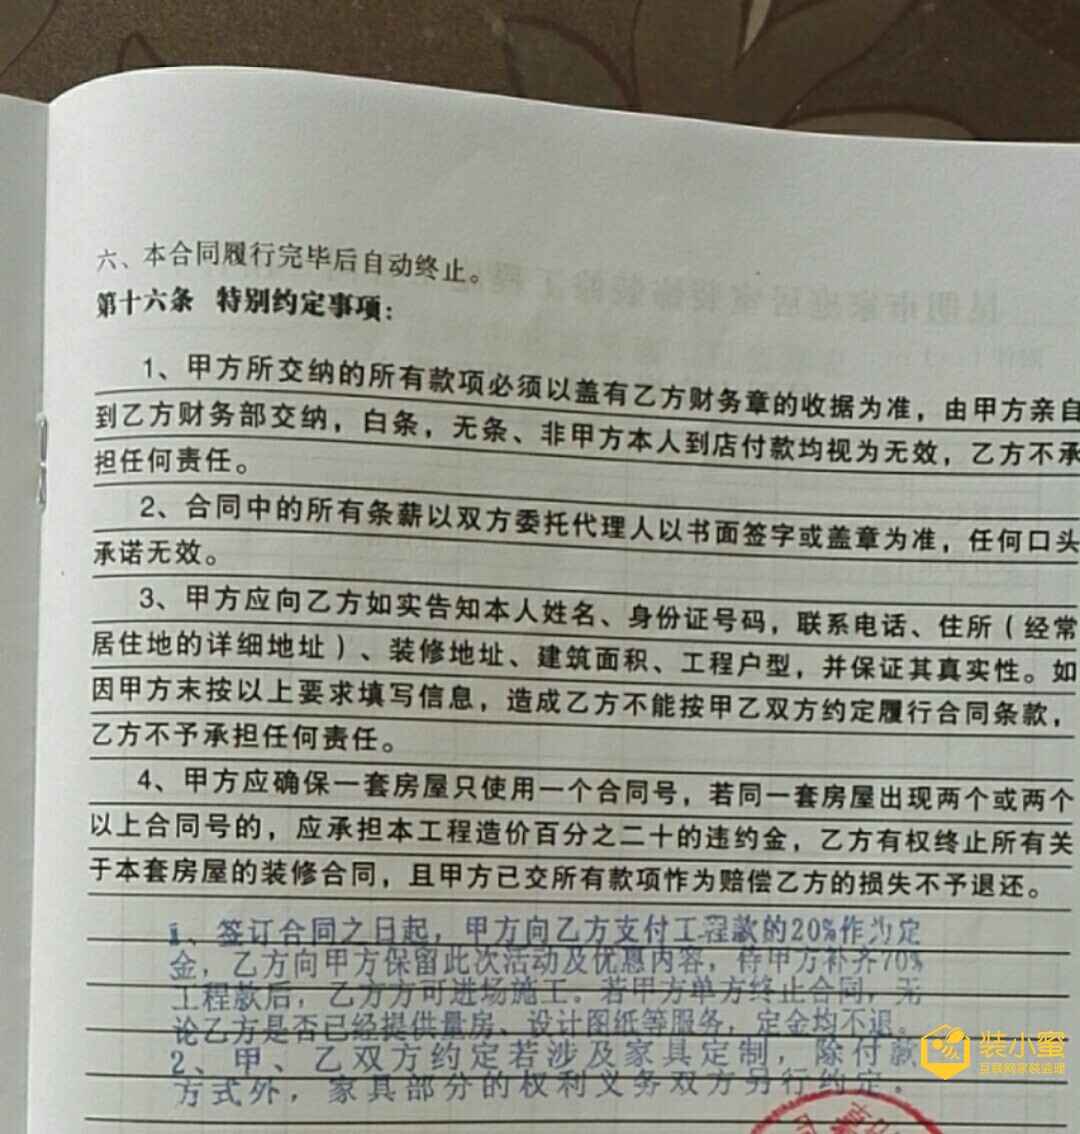 六、本合同履行完毕后自动终止。
第十六条 特别约定事项：
1、甲方所交纳的所有款项必须以盖有乙方财务章的收据为准，由甲方亲自
到乙方财务部交纳，白条，无条、非甲方本人到店付款均视为无效，乙方不承
担任何责任。
2、合同中的所有条薪以双方委托代理人以书面签字或盖章为准，任何口头
承诺无效。
3、甲方应向乙方如实告知本人姓名、身份证号码，联系电话、住所（经常
居住地的详细地址）、装修地址、建筑面积、工程户型，并保证其真实性。如
因甲方末按以上要求填写信息，造成乙方不能按甲乙双方约定履行合同条款，
乙方不予承担任何责任。
4、甲方应确保一套房屋只使用一个合同号，若同一套房屋出现两个或两个
以上合同号的，应承担本工程造价百分之二十的违约金，乙方有权终止所有关
于本套房屋的装修合同，且甲方已交所有款项怍为赔偿乙方的损失不予退还。
1、签订合同之日起，甲方向乙方支付工程款的20%作为定
金，乙方向甲方保留此次活动及优惠内容，待甲方补齐70%
工程款后，乙方方可进场施工。若甲方单方终止合同，无
论乙方是否已经提供量房、设计图纸等服务，定金均不退。
2、甲、乙双方约定若涉及家具定制，除付款
方式外，家具部分的权利义务双方另行约定。
装小蜜
互联网家装监理